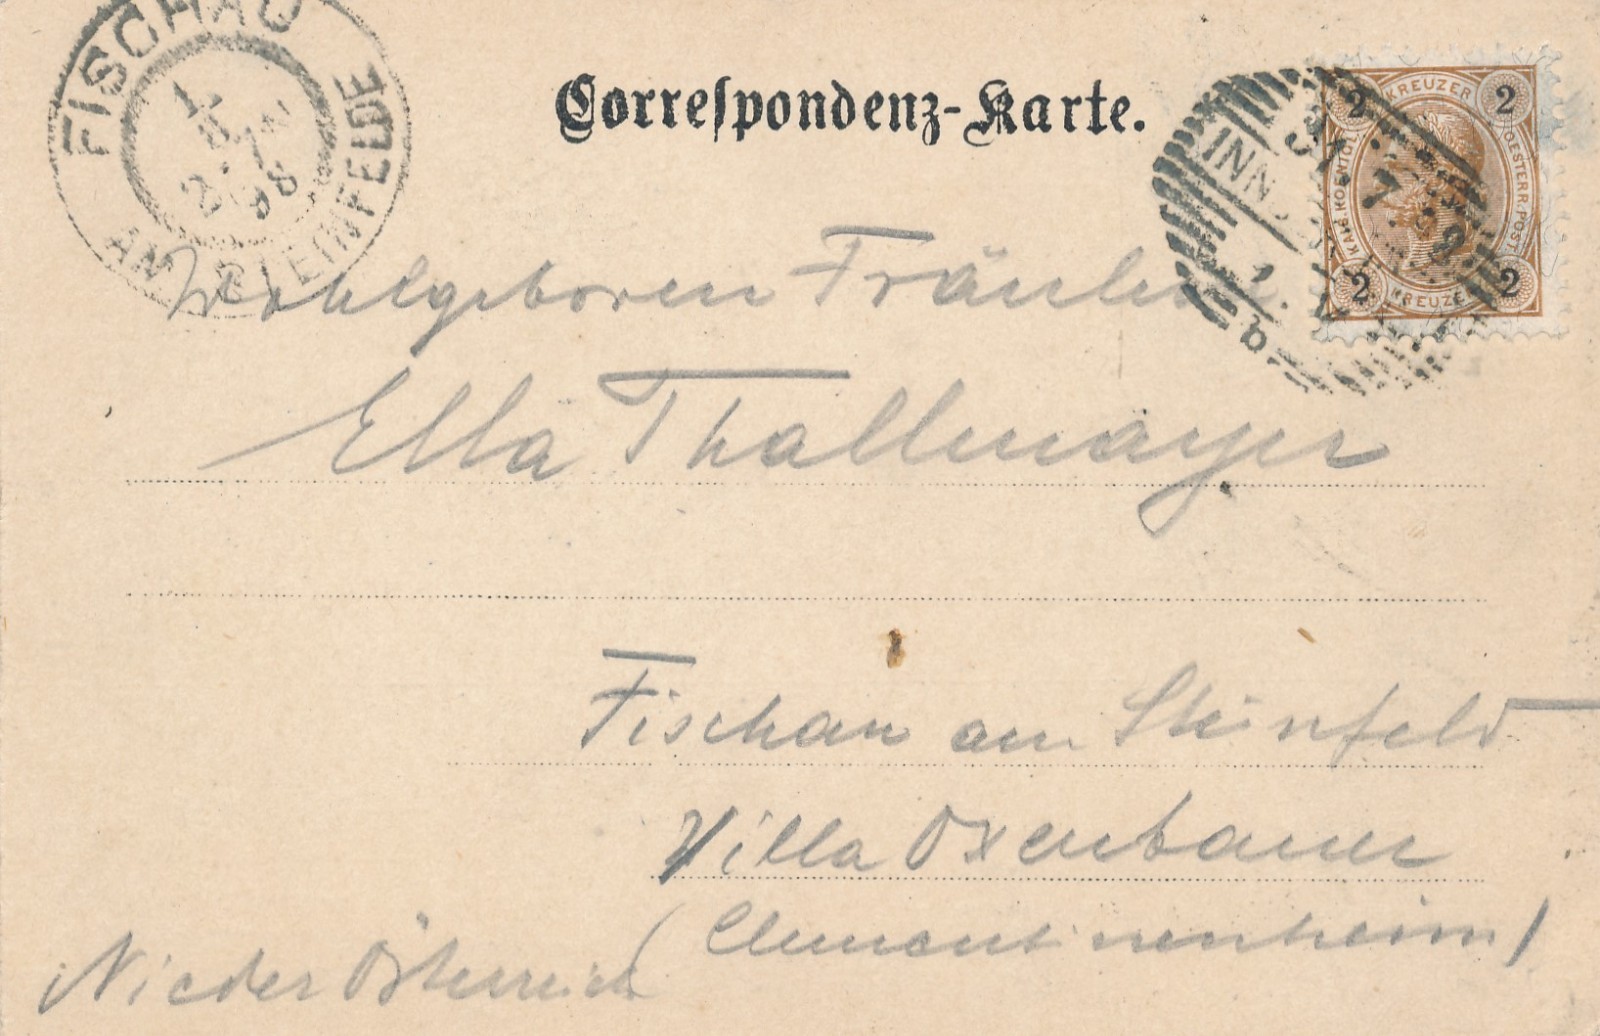 Correspondenz-Karte.
FISCHAU
AM STEINFELDE
1.
8
98
INN
31
7
2 KREUZER 2
KAIS. KOENIGL. OESTERR. POST
2 KREUZER 2
Wohlgeboren Fräulein
Ella Thallmayer
Fischau am Steinfeld
Villa Oxenbauer
(Clementinenheim)
Nieder Österreich